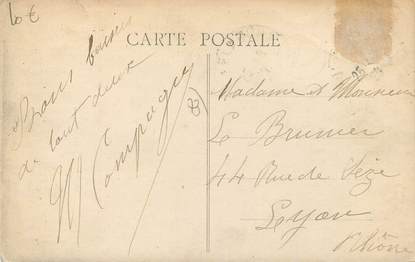 10€
CARTE POSTALE
Bons baisers
de tout deux
M Compagn
Madame & Monsieur
Le Brumer
44 Rue de Sèze
Lyon
Rhône